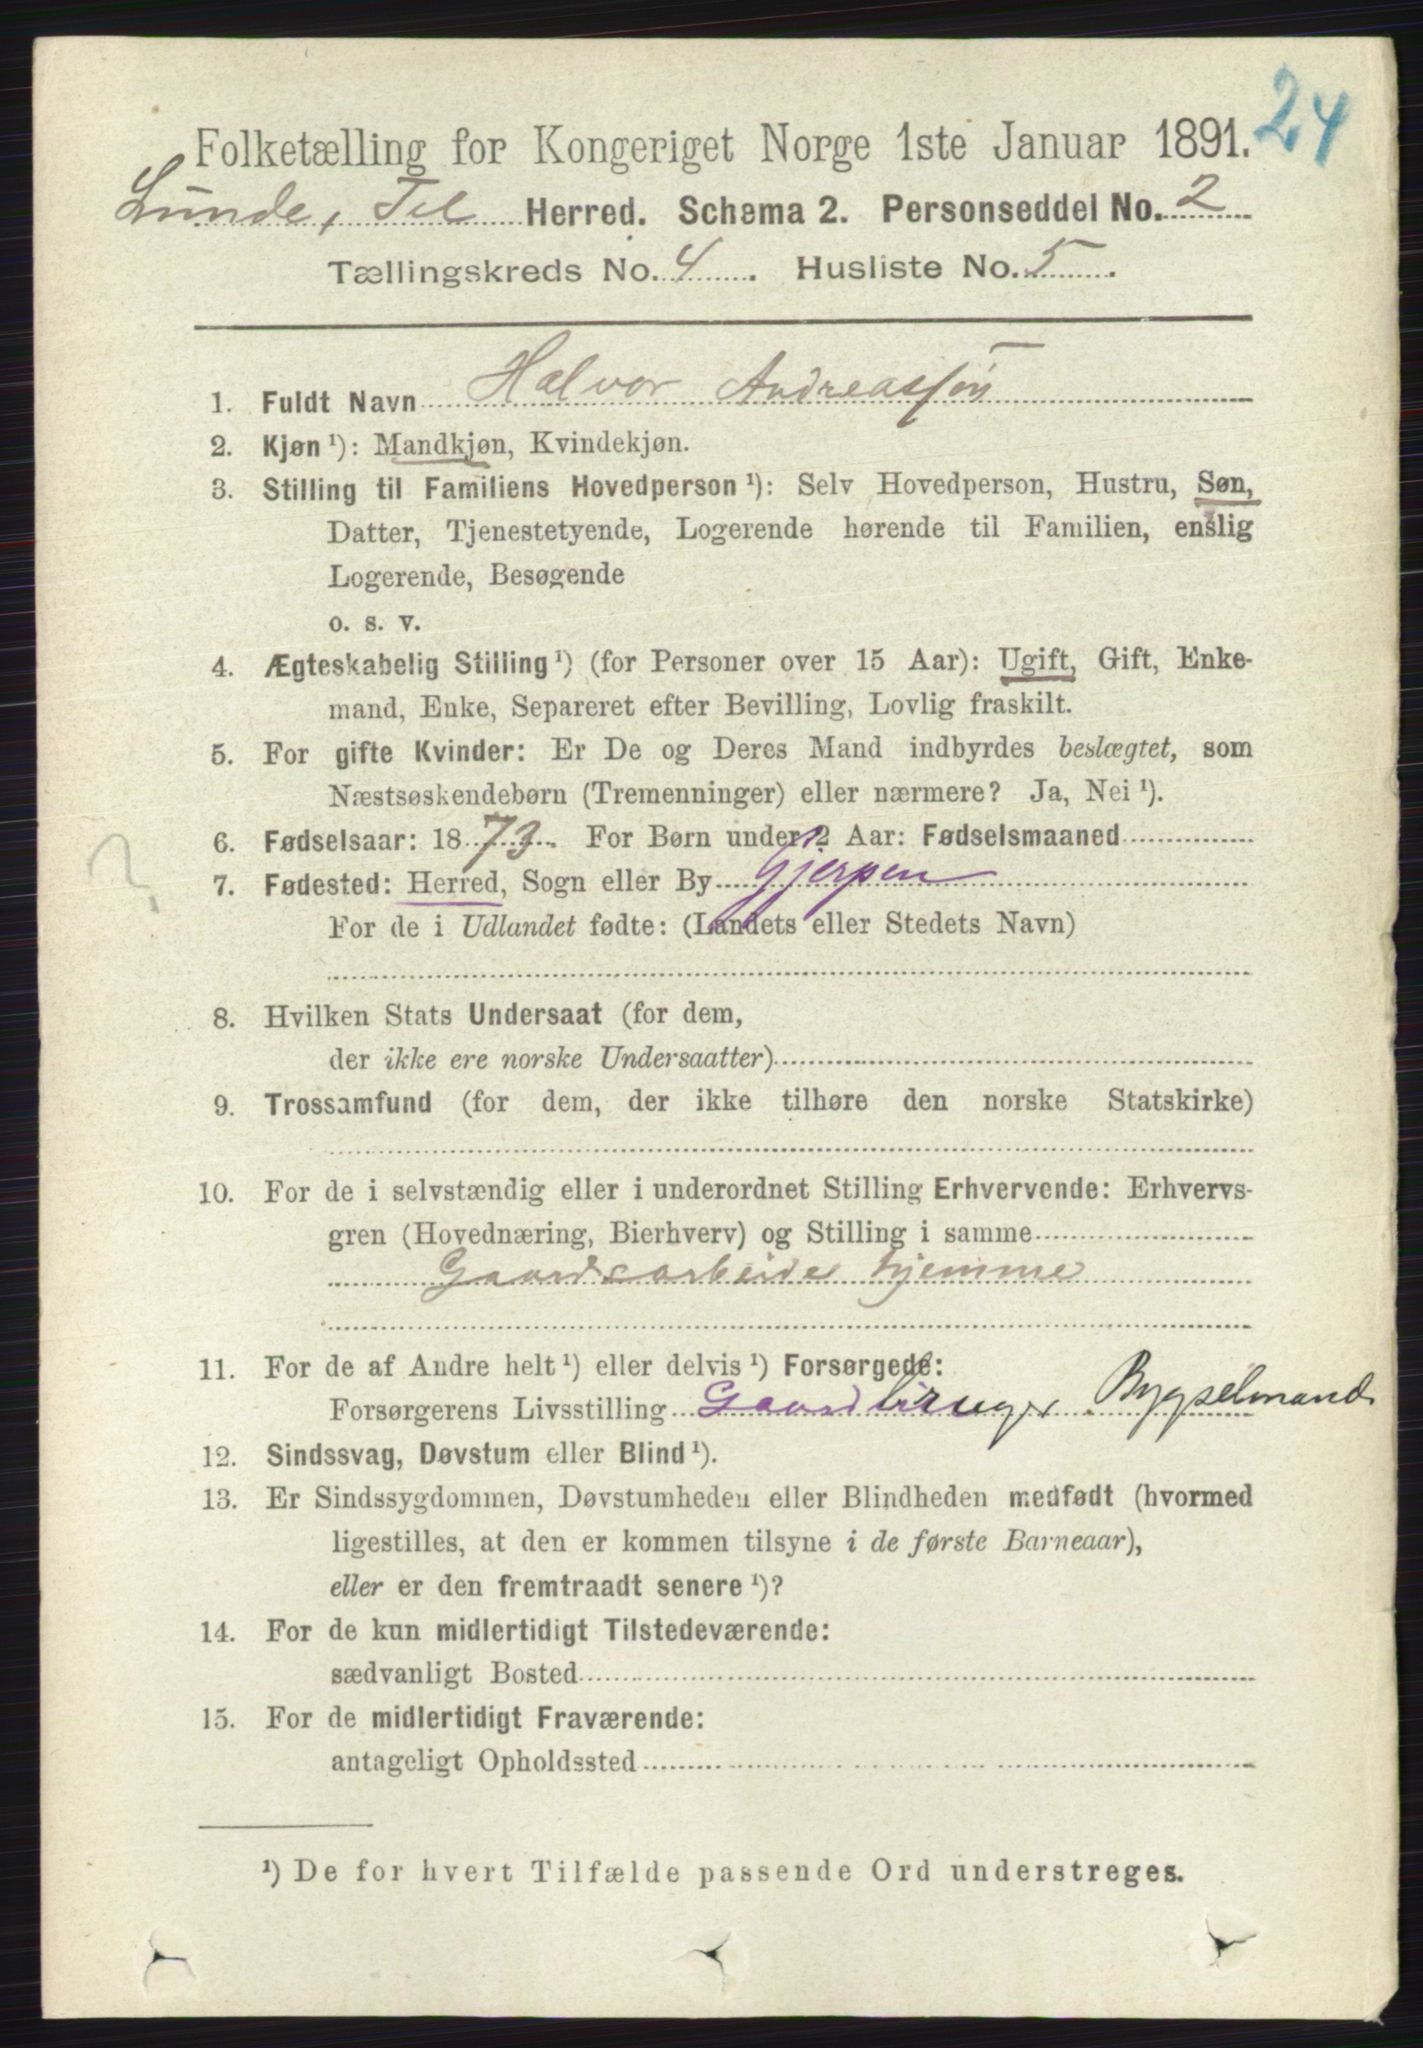 24
Folketælling for Kongeriget Norge 1ste Januar 1891.
Lunde, Tel Herred. Schema 2. Personseddel No. 2
Tællingskreds No. 4. Husliste No. 5.
1. Fuldt Navn Halvor Andreassøn
2. Kjøn ¹): Mandkjøn, Kvindekjøn.
3. Stilling til Familiens Hovedperson ¹): Selv Hovedperson, Hustru, Søn,
Datter, Tjenestetyende, Logerende hørende til Familien, enslig
Logerende, Besøgende
o. s. v.
4. Ægteskabelig Stilling ¹) (for Personer over 15 Aar): Ugift, Gift, Enke-
mand, Enke, Separeret efter Bevilling, Lovlig fraskilt.
5. For gifte Kvinder: Er De og Deres Mand indbyrdes beslægtet, som
Næstsøskendebørn (Tremenninger) eller nærmere? Ja, Nei ¹).
6. Fødselsaar: 1873. For Børn under 2 Aar: Fødselsmaaned
?
7. Fødested: Herred, Sogn eller By Gjerpen
For de i Udlandet fødte: (Landets eller Stedets Navn)
8. Hvilken Stats Undersaat (for dem,
der ikke ere norske Undersaatter)
9. Trossamfund (for dem, der ikke tilhøre den norske Statskirke)
10. For de i selvstændig eller i underordnet Stilling Erhvervende: Erhvervs-
gren (Hovednæring, Bierhverv) og Stilling i samme
Gaardsarbeide hjemme
11. For de af Andre helt ¹) eller delvis ¹) Forsørgede:
Forsørgerens Livsstilling Gaardbruger Bygselmand
12. Sindssvag, Døvstum eller Blind ¹).
13. Er Sindssygdommen, Døvstumheden eller Blindheden medfødt (hvormed
ligestilles, at den er kommen tilsyne i de første Barneaar),
eller er den fremtraadt senere ¹)?
14. For de kun midlertidigt Tilstedeværende:
sædvanligt Bosted
15. For de midlertidigt Fraværende:
antageligt Opholdssted
¹) De for hvert Tilfælde passende Ord understreges.